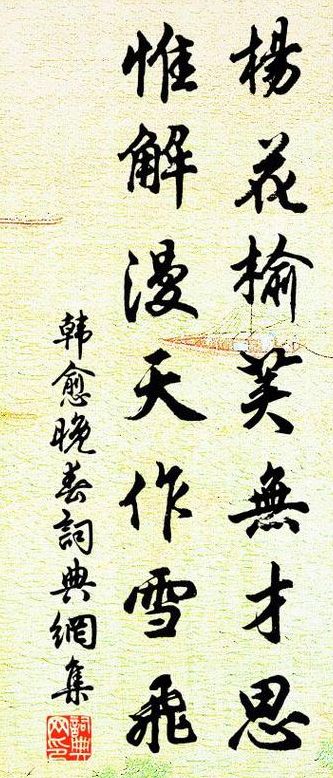 楊花榆荚無才思
惟解漫天作雪飛
韩愈晚春詞典網集
詞典网印